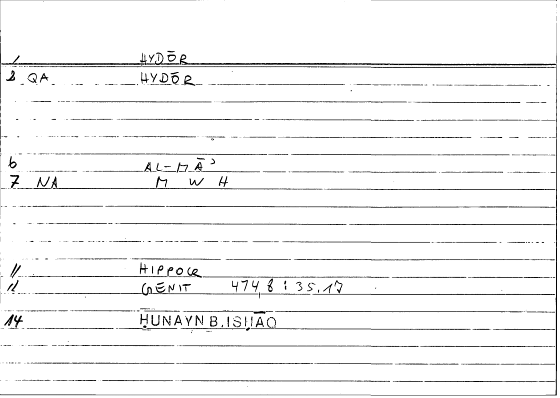 1 HYDŌR
2 QA HYDŌR
6 AL-MĀʾ
7 NA M W H
11 HIPPOCR
12 GENIT 474,8 : 35.17
14 ḤUNAYN B. ISḤĀQ